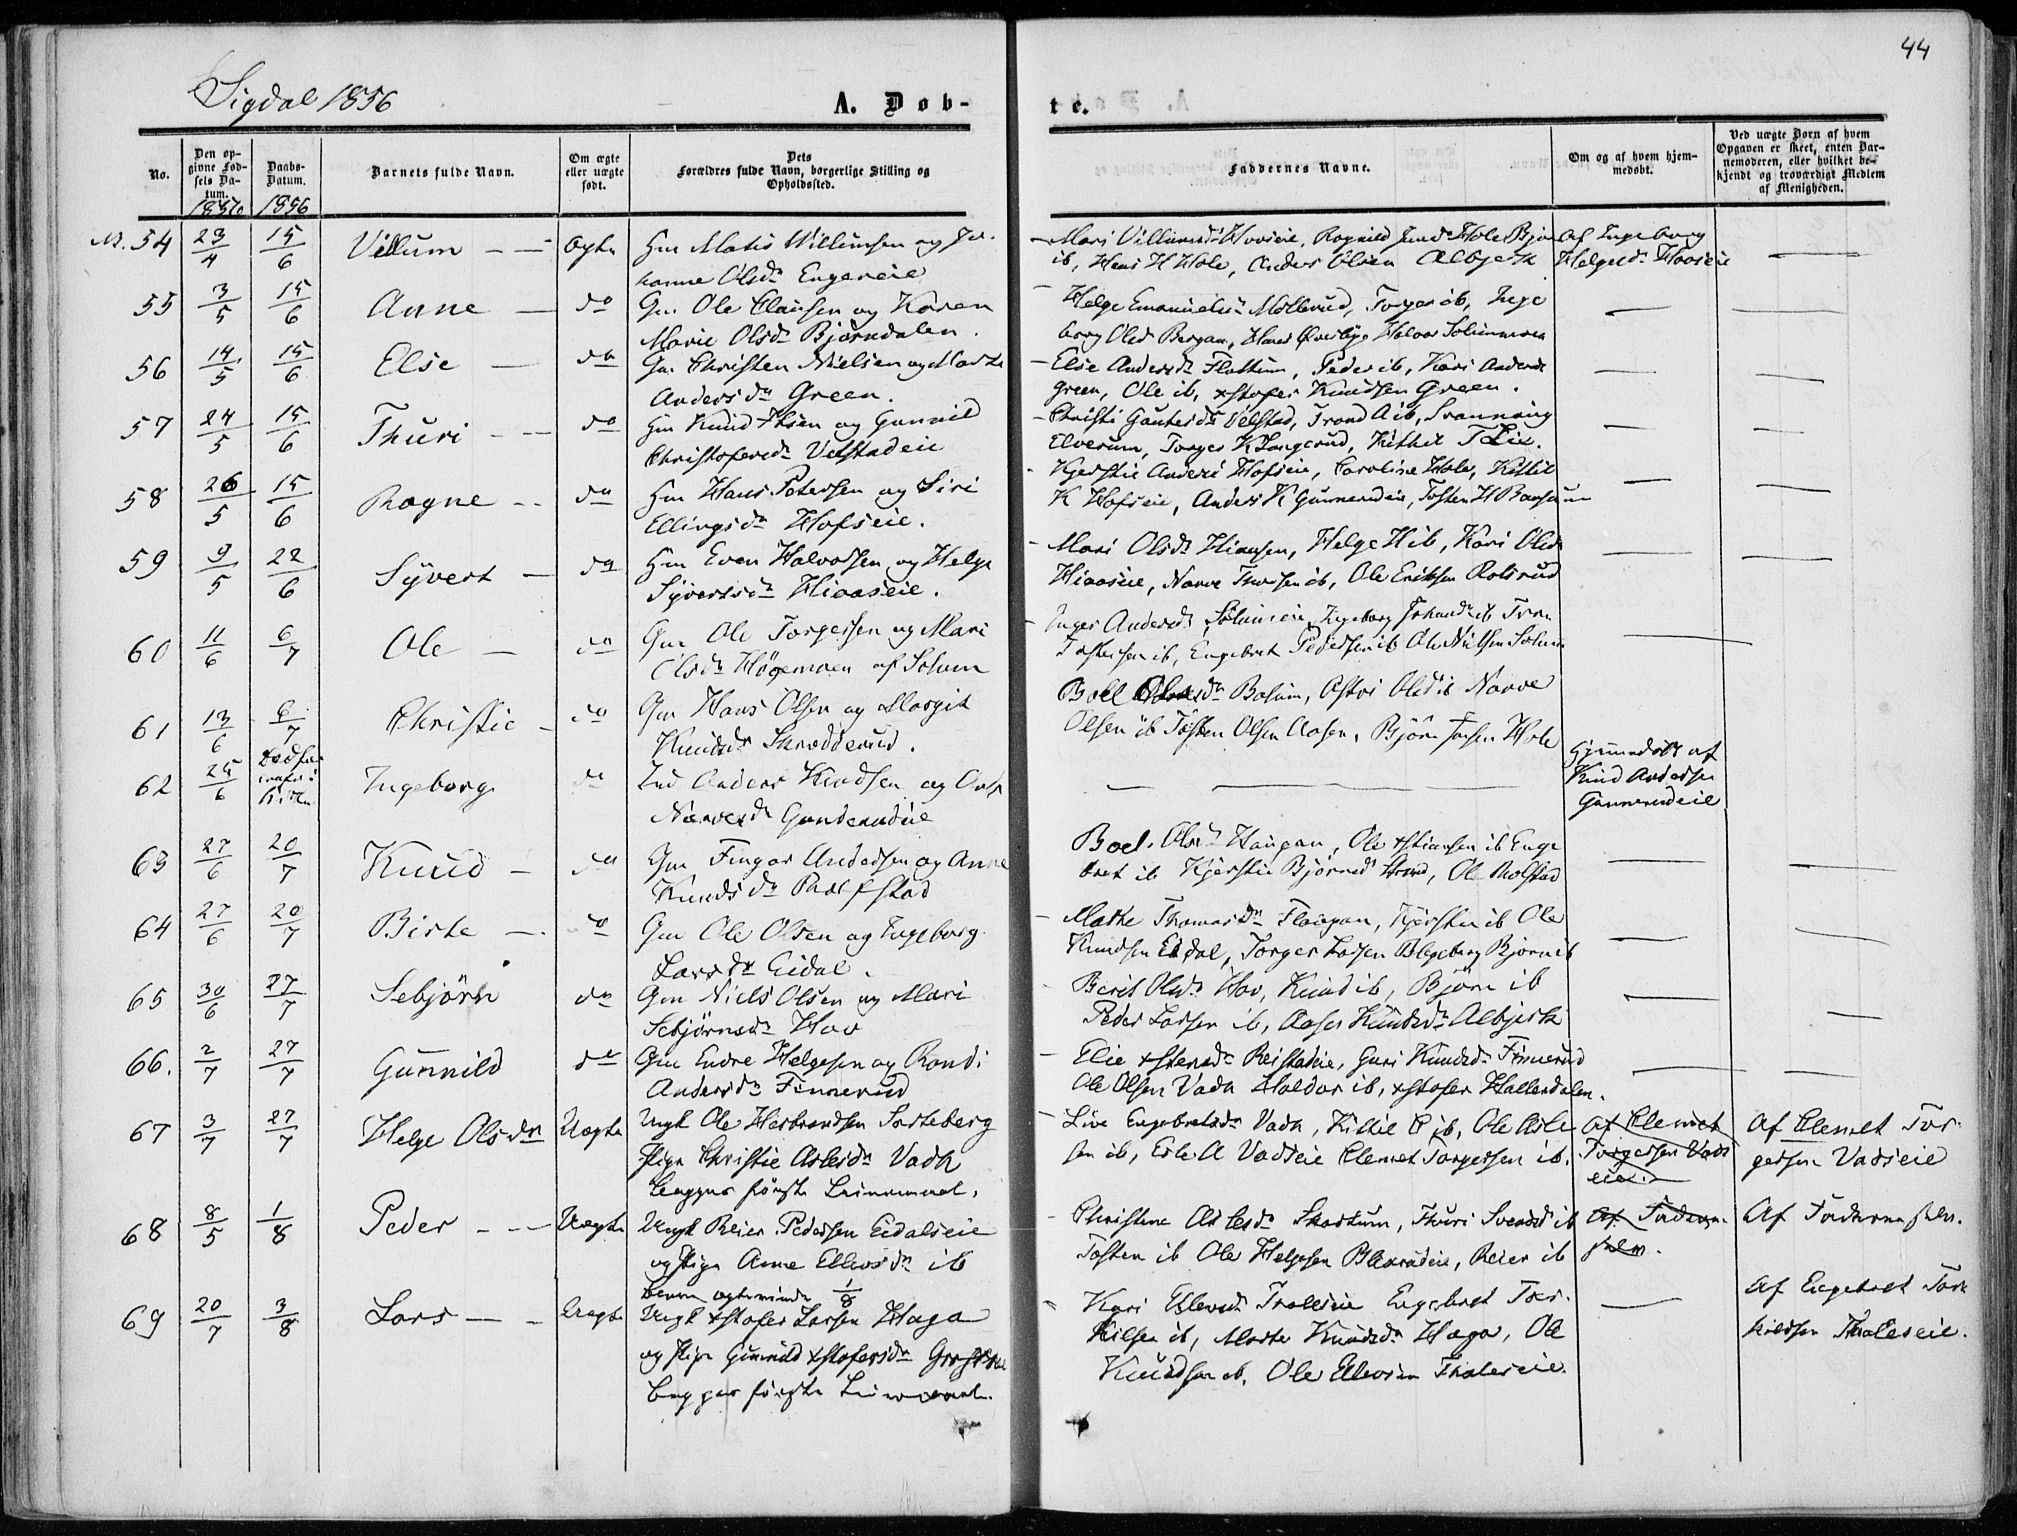 44
Sigdal 1856
A. Døb-
te.
No.
Den op-
givne Fød-
sels Da-
tum.
1856
Daabs-
Datum.
1856
Barnets fulde Navn.
Om ægte
eller uægte
født.
Dets
Forældres fulde Navn, borgerlige Stilling og
Opholdssted.
Faddernes Navne.
Om og af hvem hjem-
medøbt.
Ved uægte Born af hvem
Opgaven er skeet, enten Bar-
nemoderen, eller hvilket be-
kjendt og troværdigt Medlem
af Menigheden.
54 23/4 15/6 Villum Ægte Gm Mathis Willumsen og Jo-
hanne Olsdr Engereie
Mari Villumsd Hovseie, Hole
ib, Hans H Hole, Anders Olsen Albjerk
Af Ingeborg
Helgesdr Hovseie
55 3/5 15/6 Anne do Gm Ole Clausen og Karen
Marie Olsdr Bjørndalen.
Helge Møllerud, Torger ib, Inge
borg Olsd Bergan, Hans Øverbye Halvor
56 14/5 15/6 Else do Gm Christen Nielsen og Marthe
Andersdr Green.
Else Andersdr Flattum, Peder ib, Kari Andersdr
Green, Ole ib, xstofer Knudsen Green.
57 24/5 15/6 Thuri do Gm Knud og Gunnild
Christofersdr Velstadeie
Christi Velstad, Trond A ib, Svanaug
Elverum, Torger K Langerud, Kittil T Lie.
58 26/5 15/6 Ragne do Gm Hans Petersen og Siri
Ellingsdr Hofseie.
Kjerstie Anders Hofseie, Caroline Hole, Kittil
K Hofseie, Anders K Gunnerudeie, Tosten H
59 9/5 22/6 Syvert do Gm Even Halvorsen og Helge
Syversdr Hiaaseie.
Mari Olsdr Hiaasen, Helge H ib, Kari Olsdr
Hiaaseie, Narve ib, Ole Eriksen Rolsrud
60 11/6 6/7 Ole do Gm Ole Torgersen og Mari
Olsdr Høgemoen af Solum
Inger Andersdr Solumeie, Ingeborg ib
Tostensen ib, Engebret Pedersen ib Ole Nielsen Solum
61 13/6 6/7 Christie do Gm Hans Olsen og Margit
Knudsdr Skredderud.
Boel Basum, Astri Olsd ib Narve
Olsen ib Tosten Olsen Aasen, Bjørn Hole
62 25/6 Ingeborg do Ind Anders Knudsen og
Narvesdr
Hjemmedøbt af
Knud Andersen
Gunnerudeie
63 27/6 20/7 Knud do Gm Fingar Andersen og Anne
Knudsdr
Boel Olsdr Haugan, Ole xstiansen ib Enge
bret ib Kjerstie Bjørnsd, Ole
64 27/6 20/7 Birte do Gm Ole Olsen og Ingeborg
Larsdr Eidal.
Marthe Thomasdr Flaagan, Kjersti ib Ole
Knudsen Eidal, Torger Larsen Bjørn ib
65 30/6 27/7 Sebjørn do Gm Niels Olsen og Mari
Sebjørnsdr Hov
Berit Olsdr Hov, Knud ib, Bjørn ib
Peder Larsen ib, Knudsdr Albjerk
66. 2/7 27/7 Gunnild do Gm Endre Helgesen og Randi
Andersdr Finnerud
Elie xstensdr, Guri Knudsdr Finnerud
Ole Olsen Vadn Haldor ib, xstofer Hallerdalen.
67 3/7 27/7 Helge Olsdr Uægte Ungk Ole Herbrandsen Sorteberg
Pige Christie Aslesdr Vadn
Begges første Leiermaal.
Live Engebretsdr Vadn, Kittil ib, Ole Asle
sen ib, A Vadseie Clemet Torgersen ib.
Af Clemet
Torgersen Vads
eie.
Af Clemet Tor-
gersen Vadseie
68 8/5 1/8 Peder Uægte Ungk Reier Pedersen Eidalseie
og Pige Anne Ellevsdr ib
1/8
Christine Aslesdr Skartum, Thuri ib
Tosten ib Ole Helgesen, Reier ib
Af Faderen
selv.
Af Faderen selv.
69 20/7 3/8 Lars Uægte Ungk xstofer Larsen Haga
og Pige Gunnild xstofersdr
begges første Leiermaal.
Kari Ellevsdr Engebret Tor-
kilsen ib, Marte Knudsdr Haga, Ole
Knudsen ib, Ole Ellevsen
Af Engebret Tor
kildsen